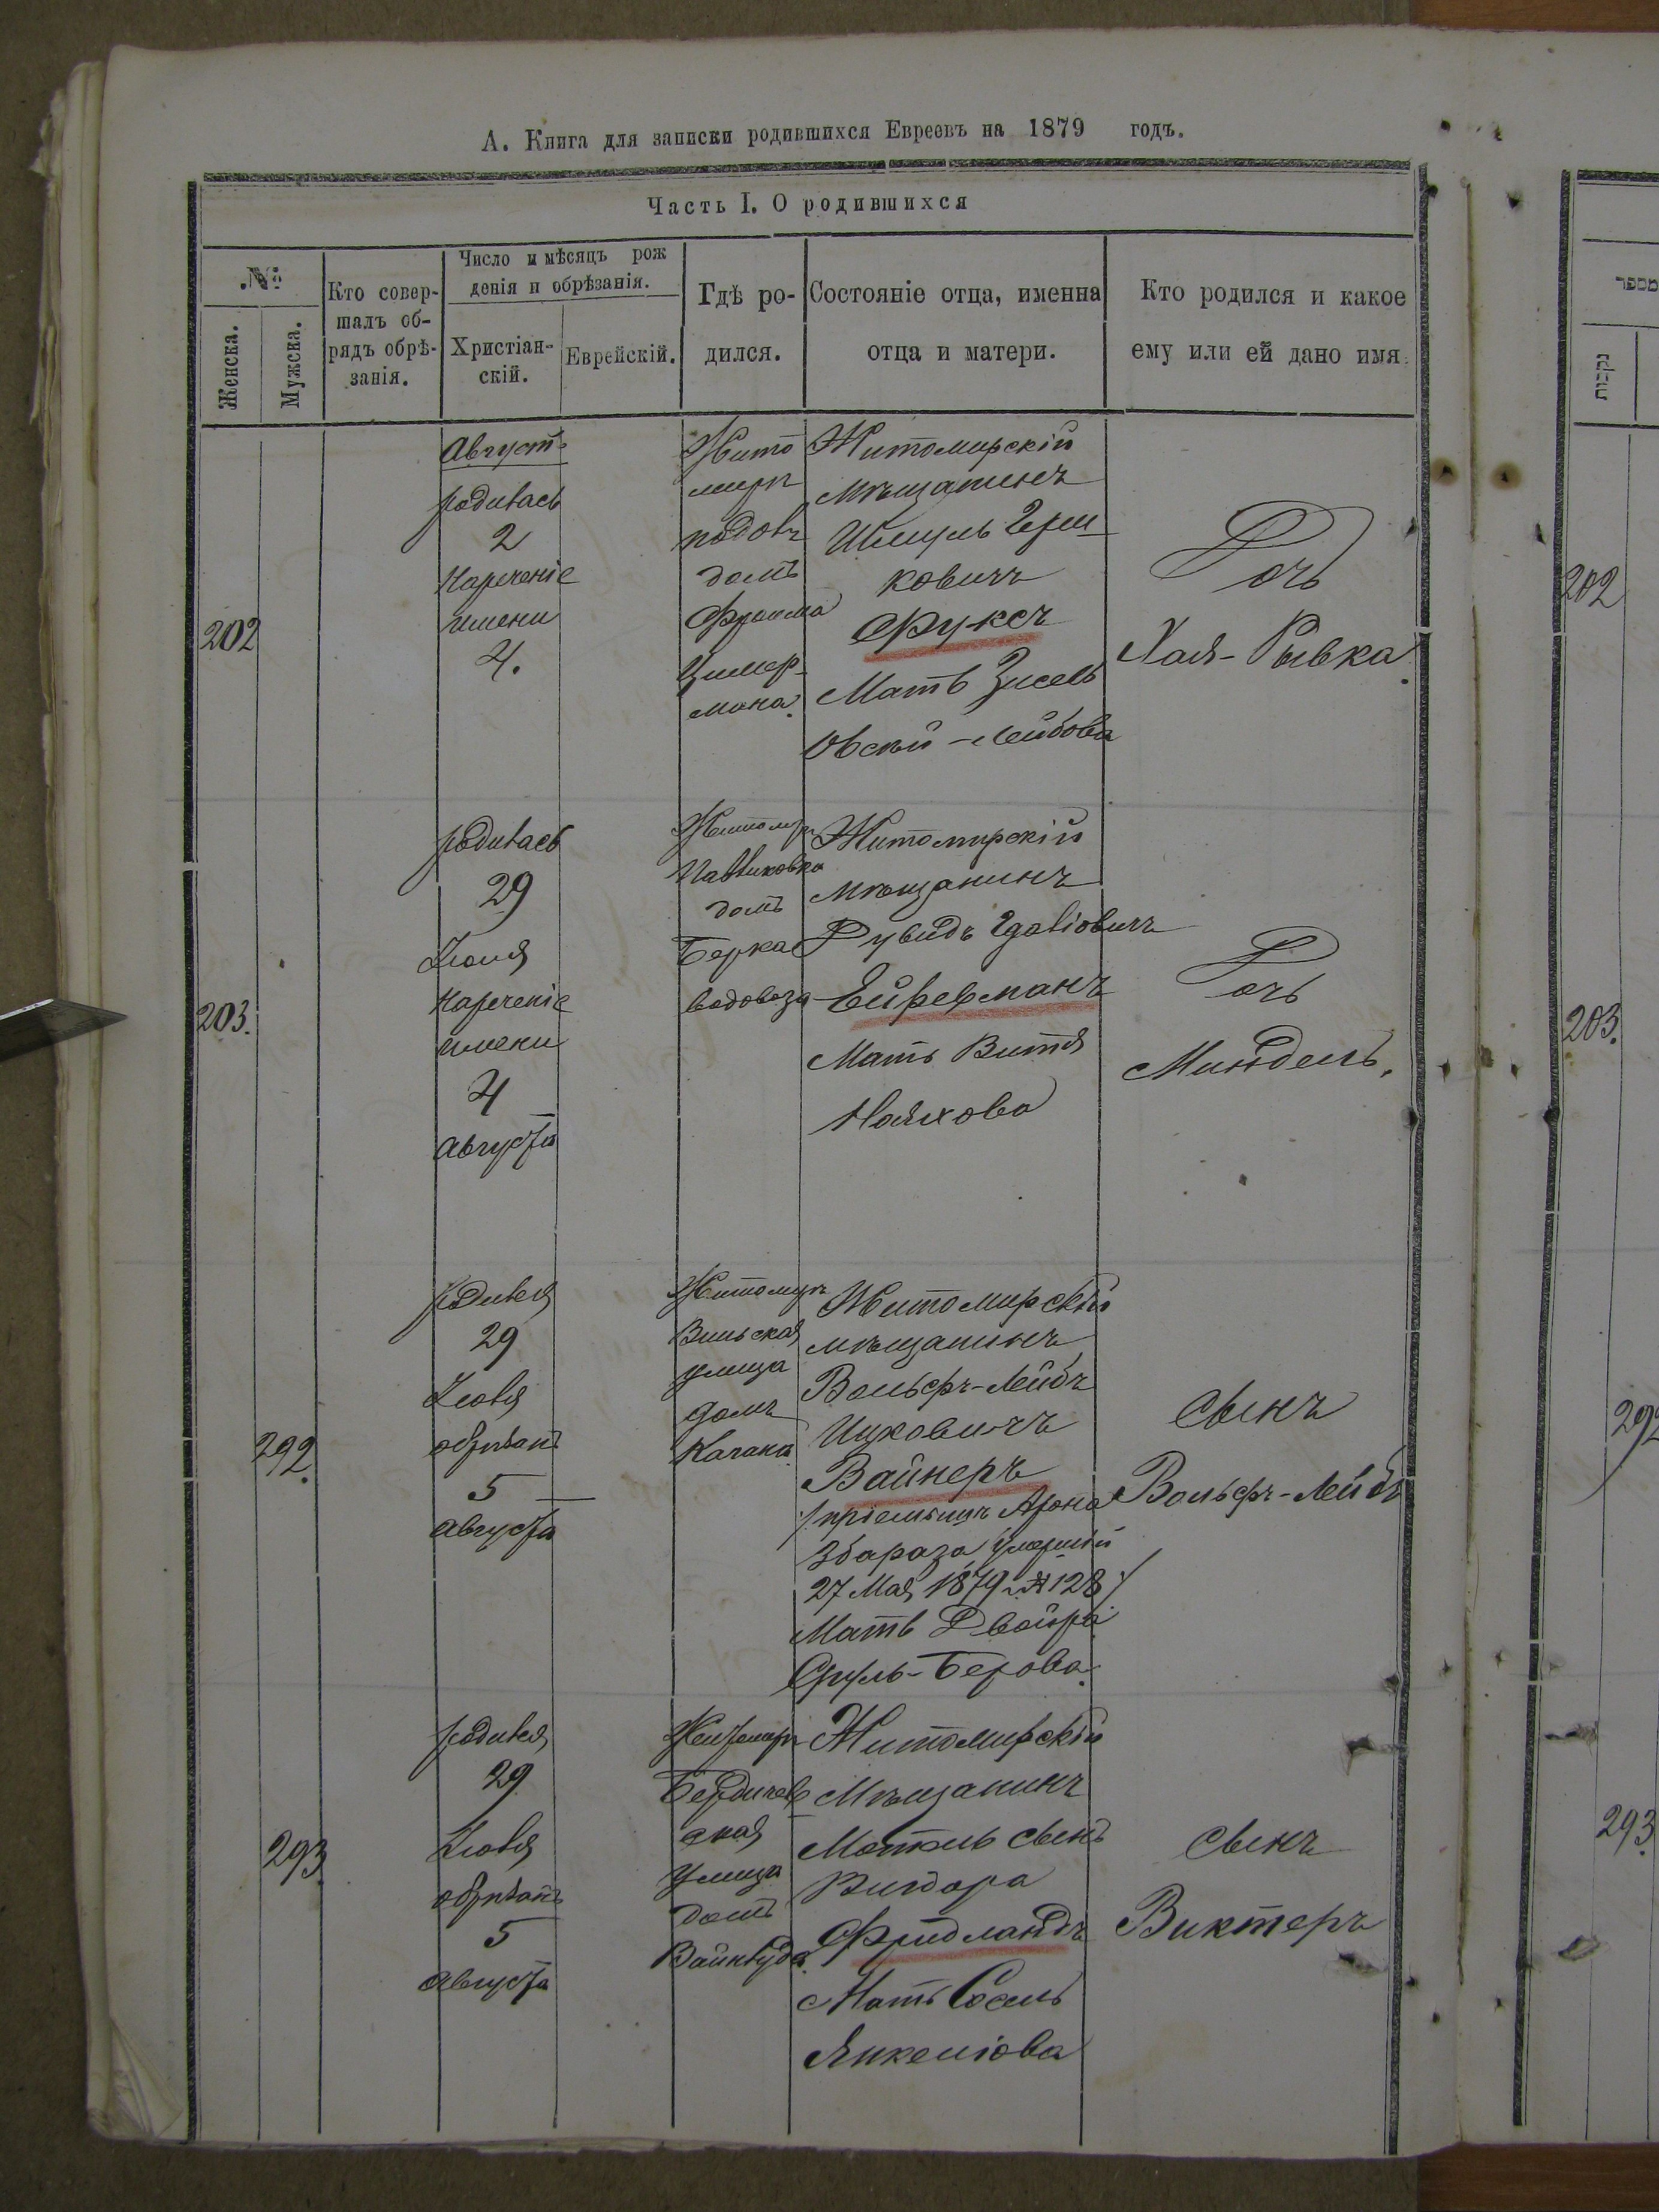 А. Книга для записки родившихся Евреевъ на 1879 годъ.
Часть I. О родившихся
№
Женска.
Мужска.
Кто совер-
шалъ об-
рядъ обрѣ-
занія.
Число и мѣсяцъ рож
денія и обрѣзанія.
Христіан-
скій.
Еврейскій.
Гдѣ ро-
дился.
Состояніе отца, именна
отца и матери.
Кто родился и какое
ему или ей дано имя.
מספר
נקבות
202
Августъ
родилась
2
Нареченіе
имени
4.
Жито
миръ
домъ
Фроима
Цимер-
мана.
Житомирскій
мѣщанинъ
Шмуль Герш
ковичъ
Фуксъ
Мать Зисель
Овсѣй-Лейбова
Дочь
Хая-Рывка.
202
203.
родилась
29
Іюля
Нареченіе
имени
4
Августа
Житомиръ
Павликовка
домъ
Берка
водовоза
Житомирскій
мѣщанинъ
Ейферманъ
Мать Витя
Дочь
Миндель.
203.
292.
родился
29
Іюля
обрѣзанъ
5
Августа
Житомиръ
Вильская
улица
домъ
Кагана.
Житомирскій
мѣщанинъ
Вольфъ-Лейбъ
Ицковичъ
Вайнеръ
/пріемышъ Арона
Збараза умершій
27 Мая 1879 г. № 128/
Мать Двойра
Сруль-Берова.
Сынъ
Вольфъ-Лейбъ
292
293.
родился
29
Іюля
обрѣзанъ
5
Августа
Житомиръ
Бердичев
ская
Улица
домъ
Житомирскій
Мѣщанинъ
Мотель сынъ
Вигдора
Фридландъ
Мать Сосель
Янкеліова
Сынъ
Виктеръ
293.